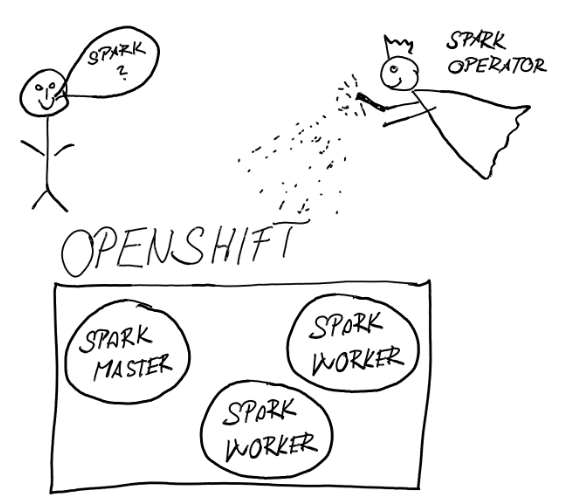 SPARK
?
SPARK
OPERATOR
OPENSHIFT
SPARK
MASTER
SPARK
WORKER
SPARK
WORKER